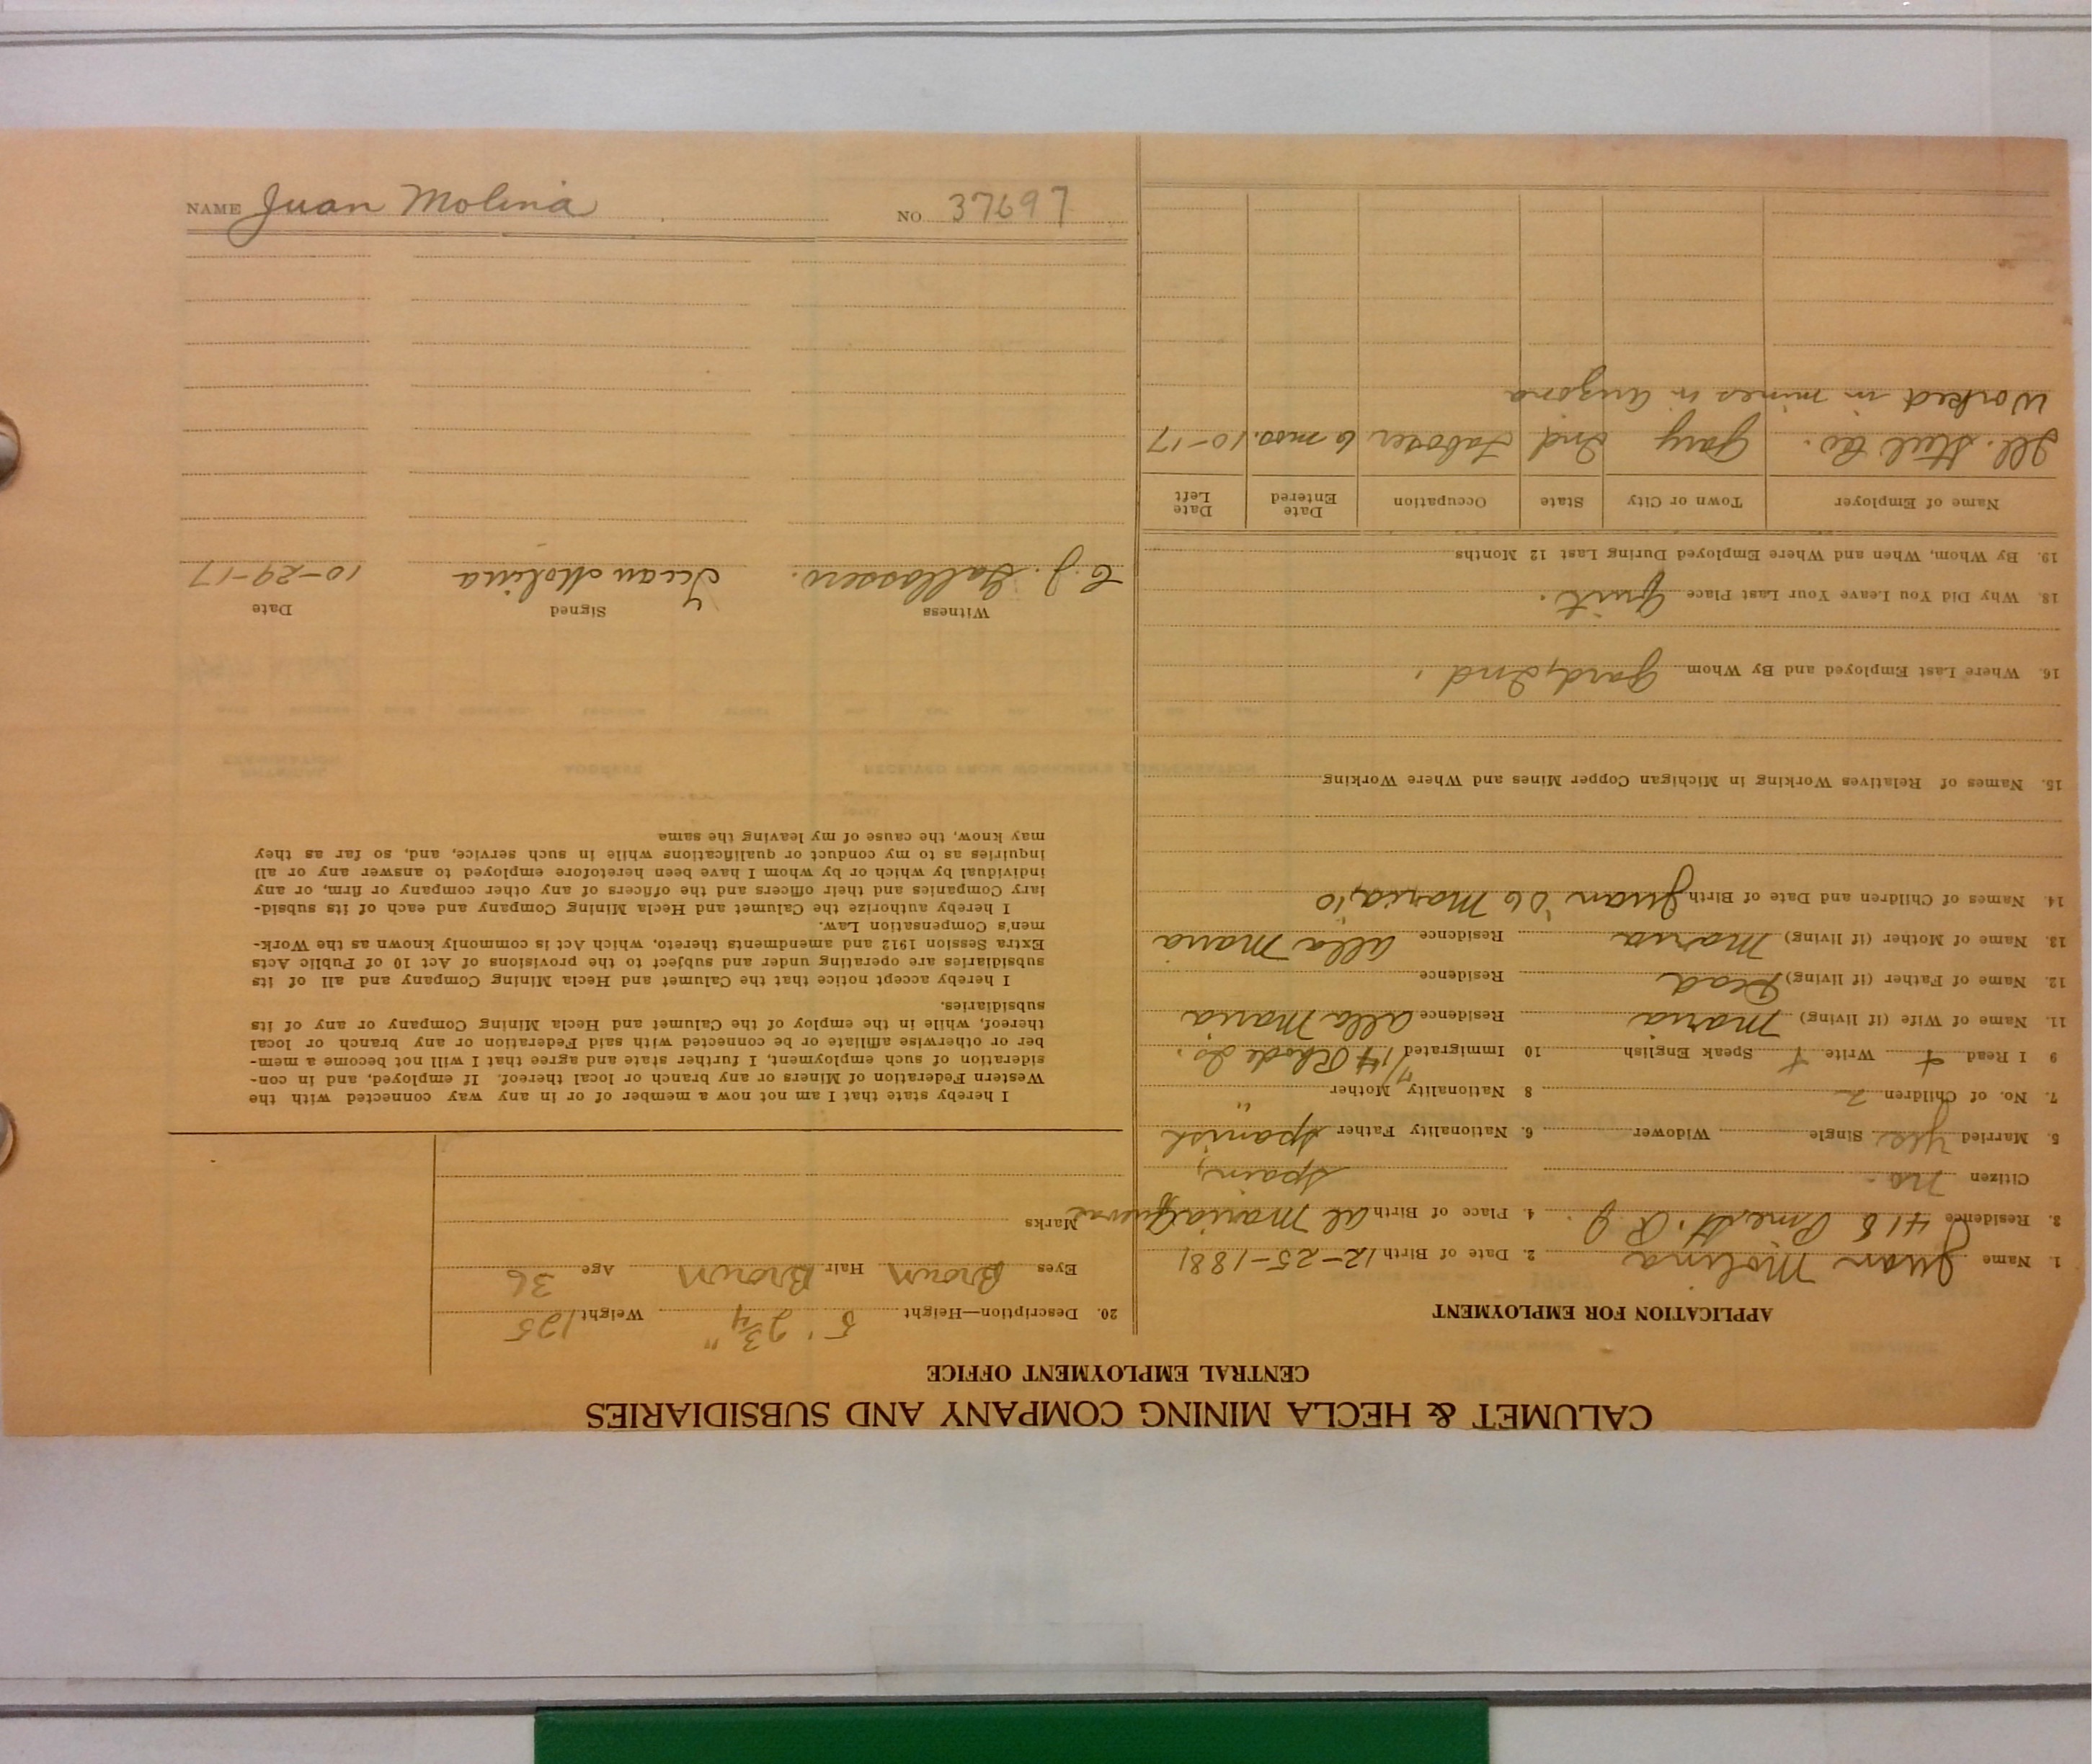 CALUMET & HECLA MINING COMPANY AND SUBSIDIARIES
CENTRAL EMPLOYMENT OFFICE
APPLICATION FOR EMPLOYMENT
1. Name Juan Molina 2. Date of Birth 12-25-1881
3. Residence 418 4. Place of Birth al Maria
Citizen no. Spain,
5. Married Yes. Single Widower 6. Nationality Father Spanish
7. No. of Children 2 8 Nationality Mother "
9 I Read + Write + Speak English 10 Immigrated Rhode Is.
11. Name of Wife (if living) Maria Residence alla Maria
12. Name of Father (if living) Dead Residence
13. Name of Mother (if living) Maria Residence alla Maria
14. Names of Children and Date of Birth Juan '06 Maria, '10
15. Names of Relatives Working in Michigan Copper Mines and Where Working
16. Where Last Employed and By Whom Gard, Ind.
18. Why Did You Leave Your Last Place Quit.
19. By Whom, When and Where Employed During Last 12 Months
Name of Employer Town or City State Occupation Date Entered Date Left
Ill. Steel Co. Gary Ind Laborer 6 mos. 10-17
Worked in mines in Arizona
20. Description—Height 5' 2 3/4" Weight 125
Eyes Brown Hair Brown Age 36
Marks
I hereby state that I am not now a member of or in any way connected with the
Western Federation of Miners or any branch or local thereof. If employed, and in con-
sideration of such employment, I further state and agree that I will not become a mem-
ber or otherwise affiliate or be connected with said Federation or any branch or local
thereof, while in the employ of the Calumet and Hecla Mining Company or any of its
subsidiaries.
I hereby accept notice that the Calumet and Hecla Mining Company and all of its
subsidiaries are operating under and subject to the provisions of Act 10 of Public Acts
Extra Session 1912 and amendments thereto, which Act is commonly known as the Work-
men's Compensation Law.
I hereby authorize the Calumet and Hecla Mining Company and each of its subsid-
iary Companies and their officers and the officers of any other company or firm, or any
individual by which or by whom I have been heretofore employed to answer any or all
inquiries as to my conduct or qualifications while in such service, and, so far as they
may know, the cause of my leaving the same
Witness Signed Date
Juan Molina 10-29-17
NAME Juan Molina NO. 37697